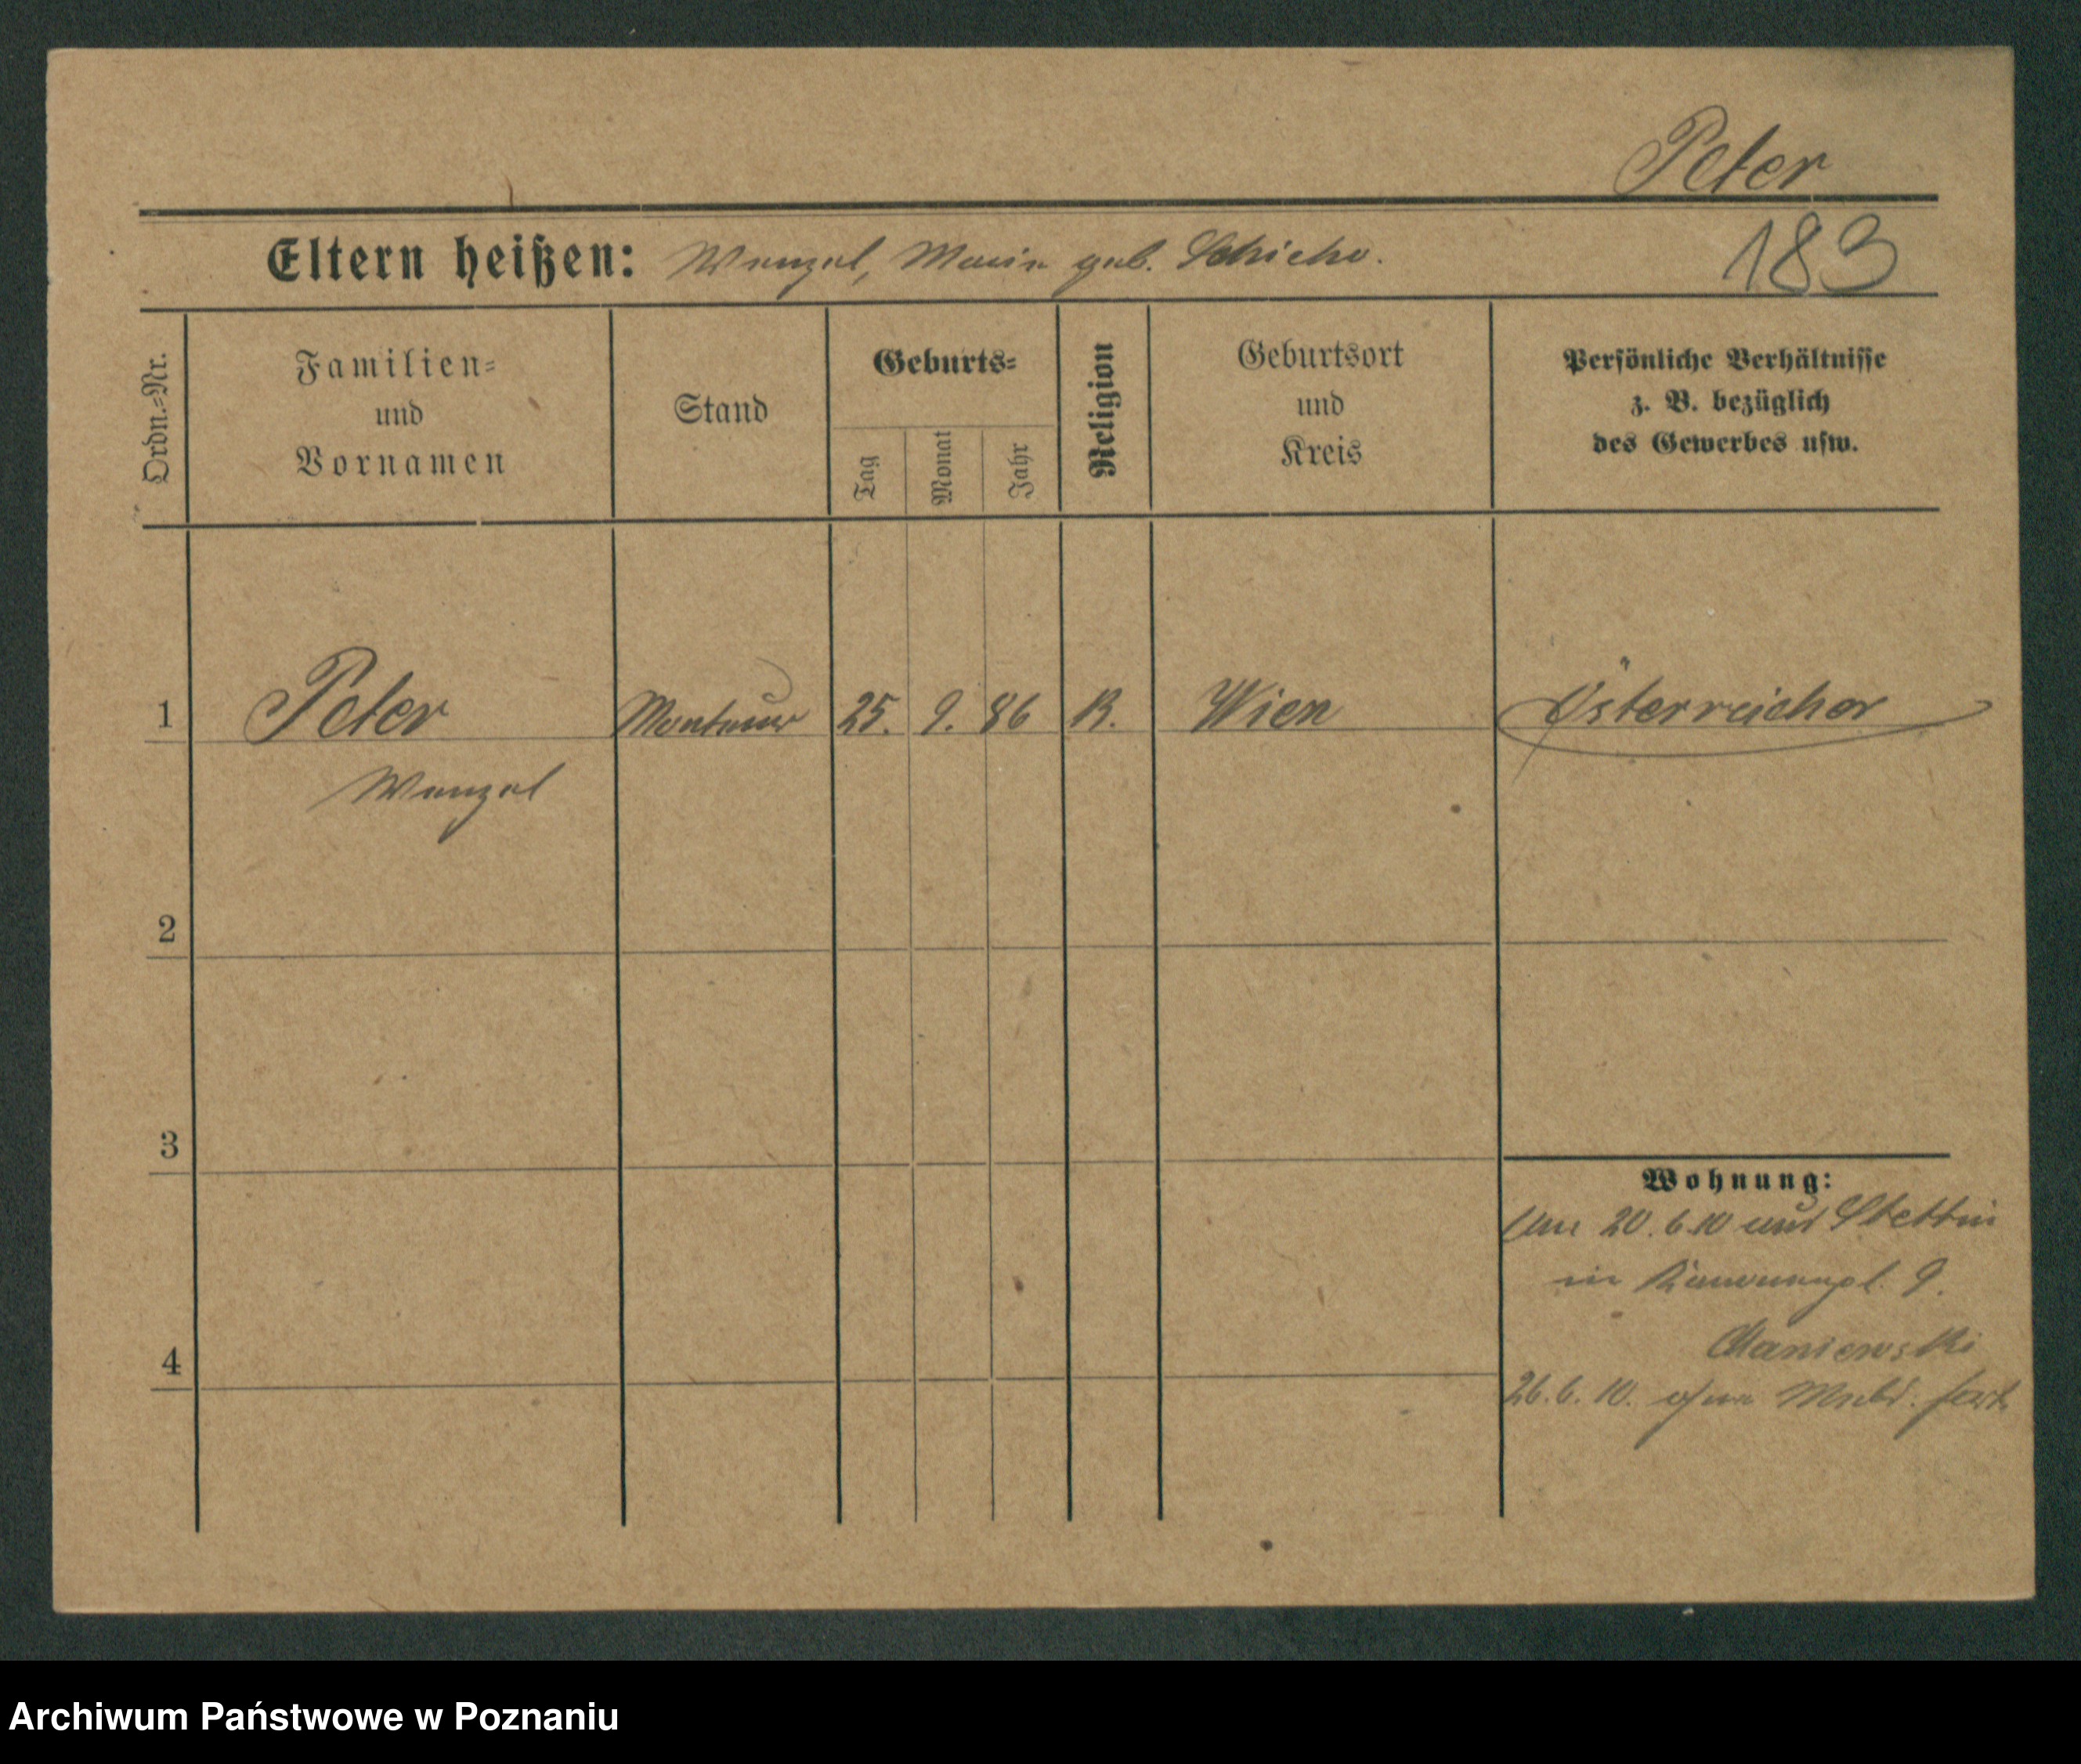 Peter
183
Eltern heißen: Wenzel, Marie geb. Schicho.
Ordn.=Nr.
Familien=
und
Vornamen
Stand
Geburts=
Tag
Monat
Jahr
Religion
Geburtsort
und
Kreis
Persönliche Verhältnisse
z. B. bezüglich
des Gewerbes usw.
1 Peter Monteur 25. 9. 86 K. Wien Österreicher
Wenzel
2
3
Wohnung:
Am 20.6.10 aus Stettin
in 9.
4
26.6.10. ohne Meld. fort
Archiwum Państwowe w Poznaniu